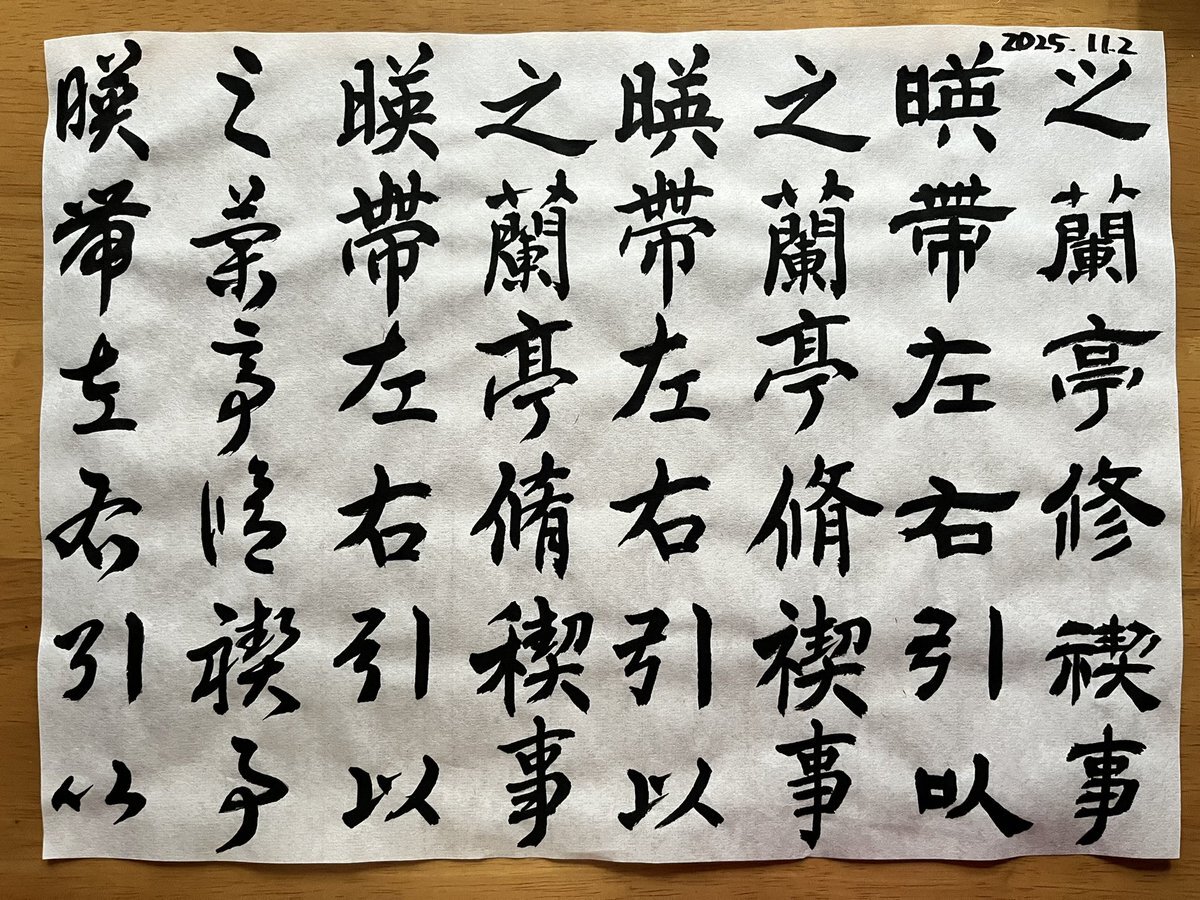 2025.11.2
之蘭亭修禊事
暎帶左右引以
之蘭亭脩禊事
暎帶左右引以
之蘭亭脩稧事
暎帶左右引以
之蘭亭脩禊事
暎帶左右引以